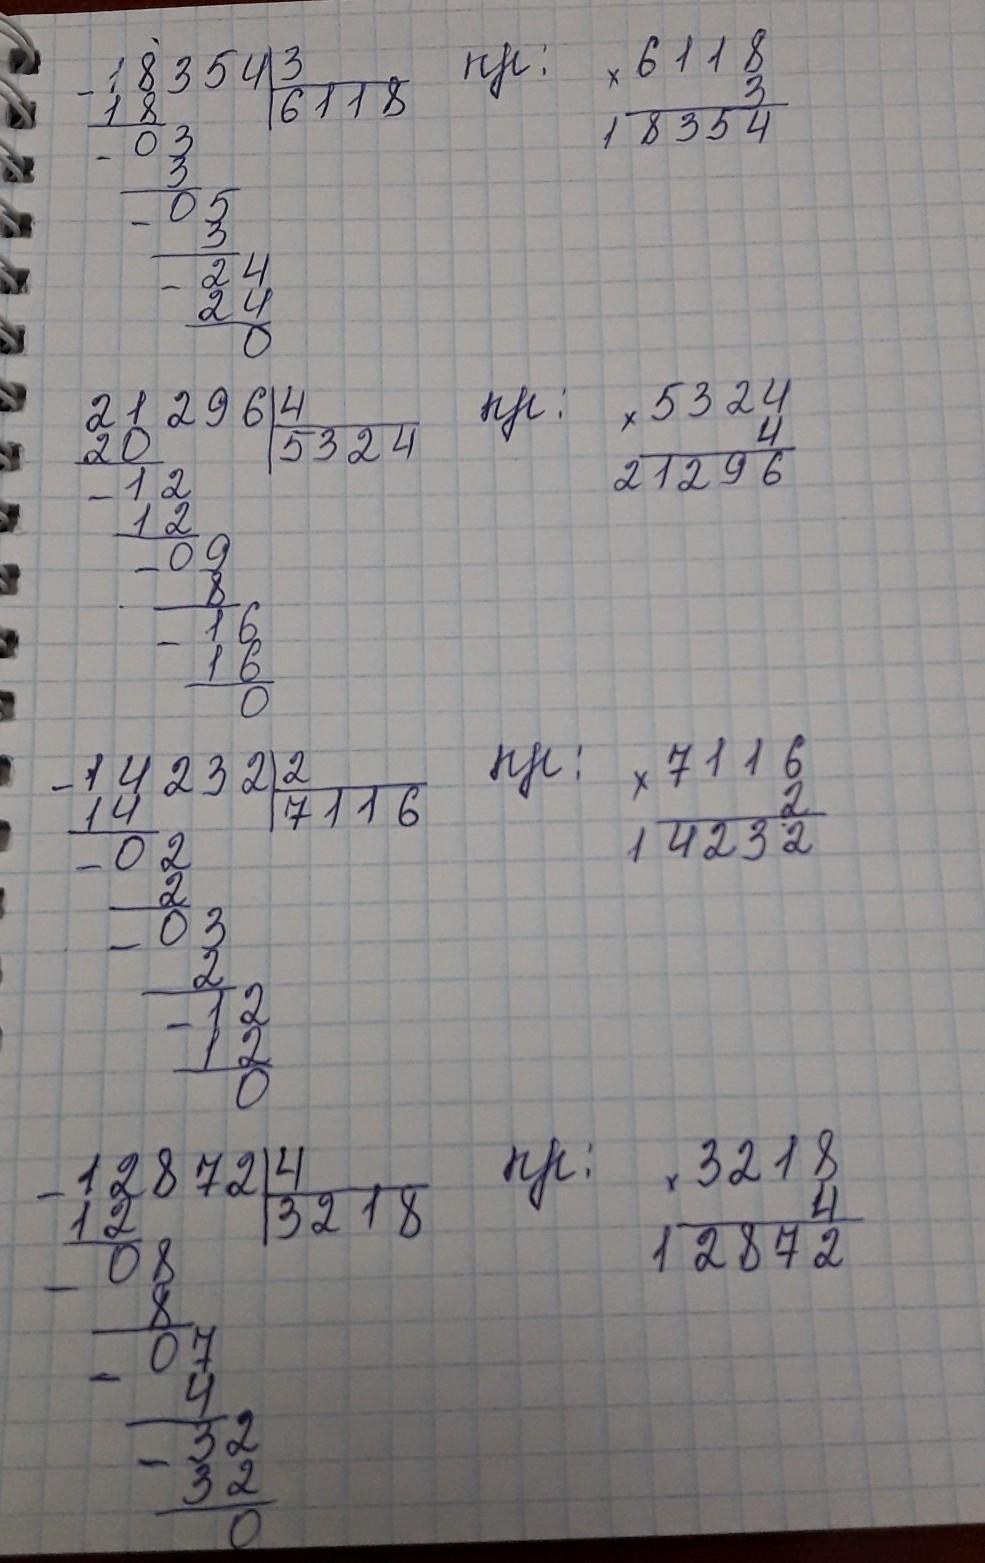 - 18354 | 3 пр: × 6118
18 | 6118 3
- 03 18354
3
- 05
3
- 24
24
0
21296 | 4 пр: × 5324
20 | 5324 4
- 12 21296
12
- 09
8
- 16
16
0
- 14232 | 2 пр: × 7116
14 | 7116 2
- 02 14232
2
- 03
2
- 12
12
0
- 12872 | 4 пр: × 3218
12 | 3218 4
- 08 12872
8
- 07
4
- 32
32
0